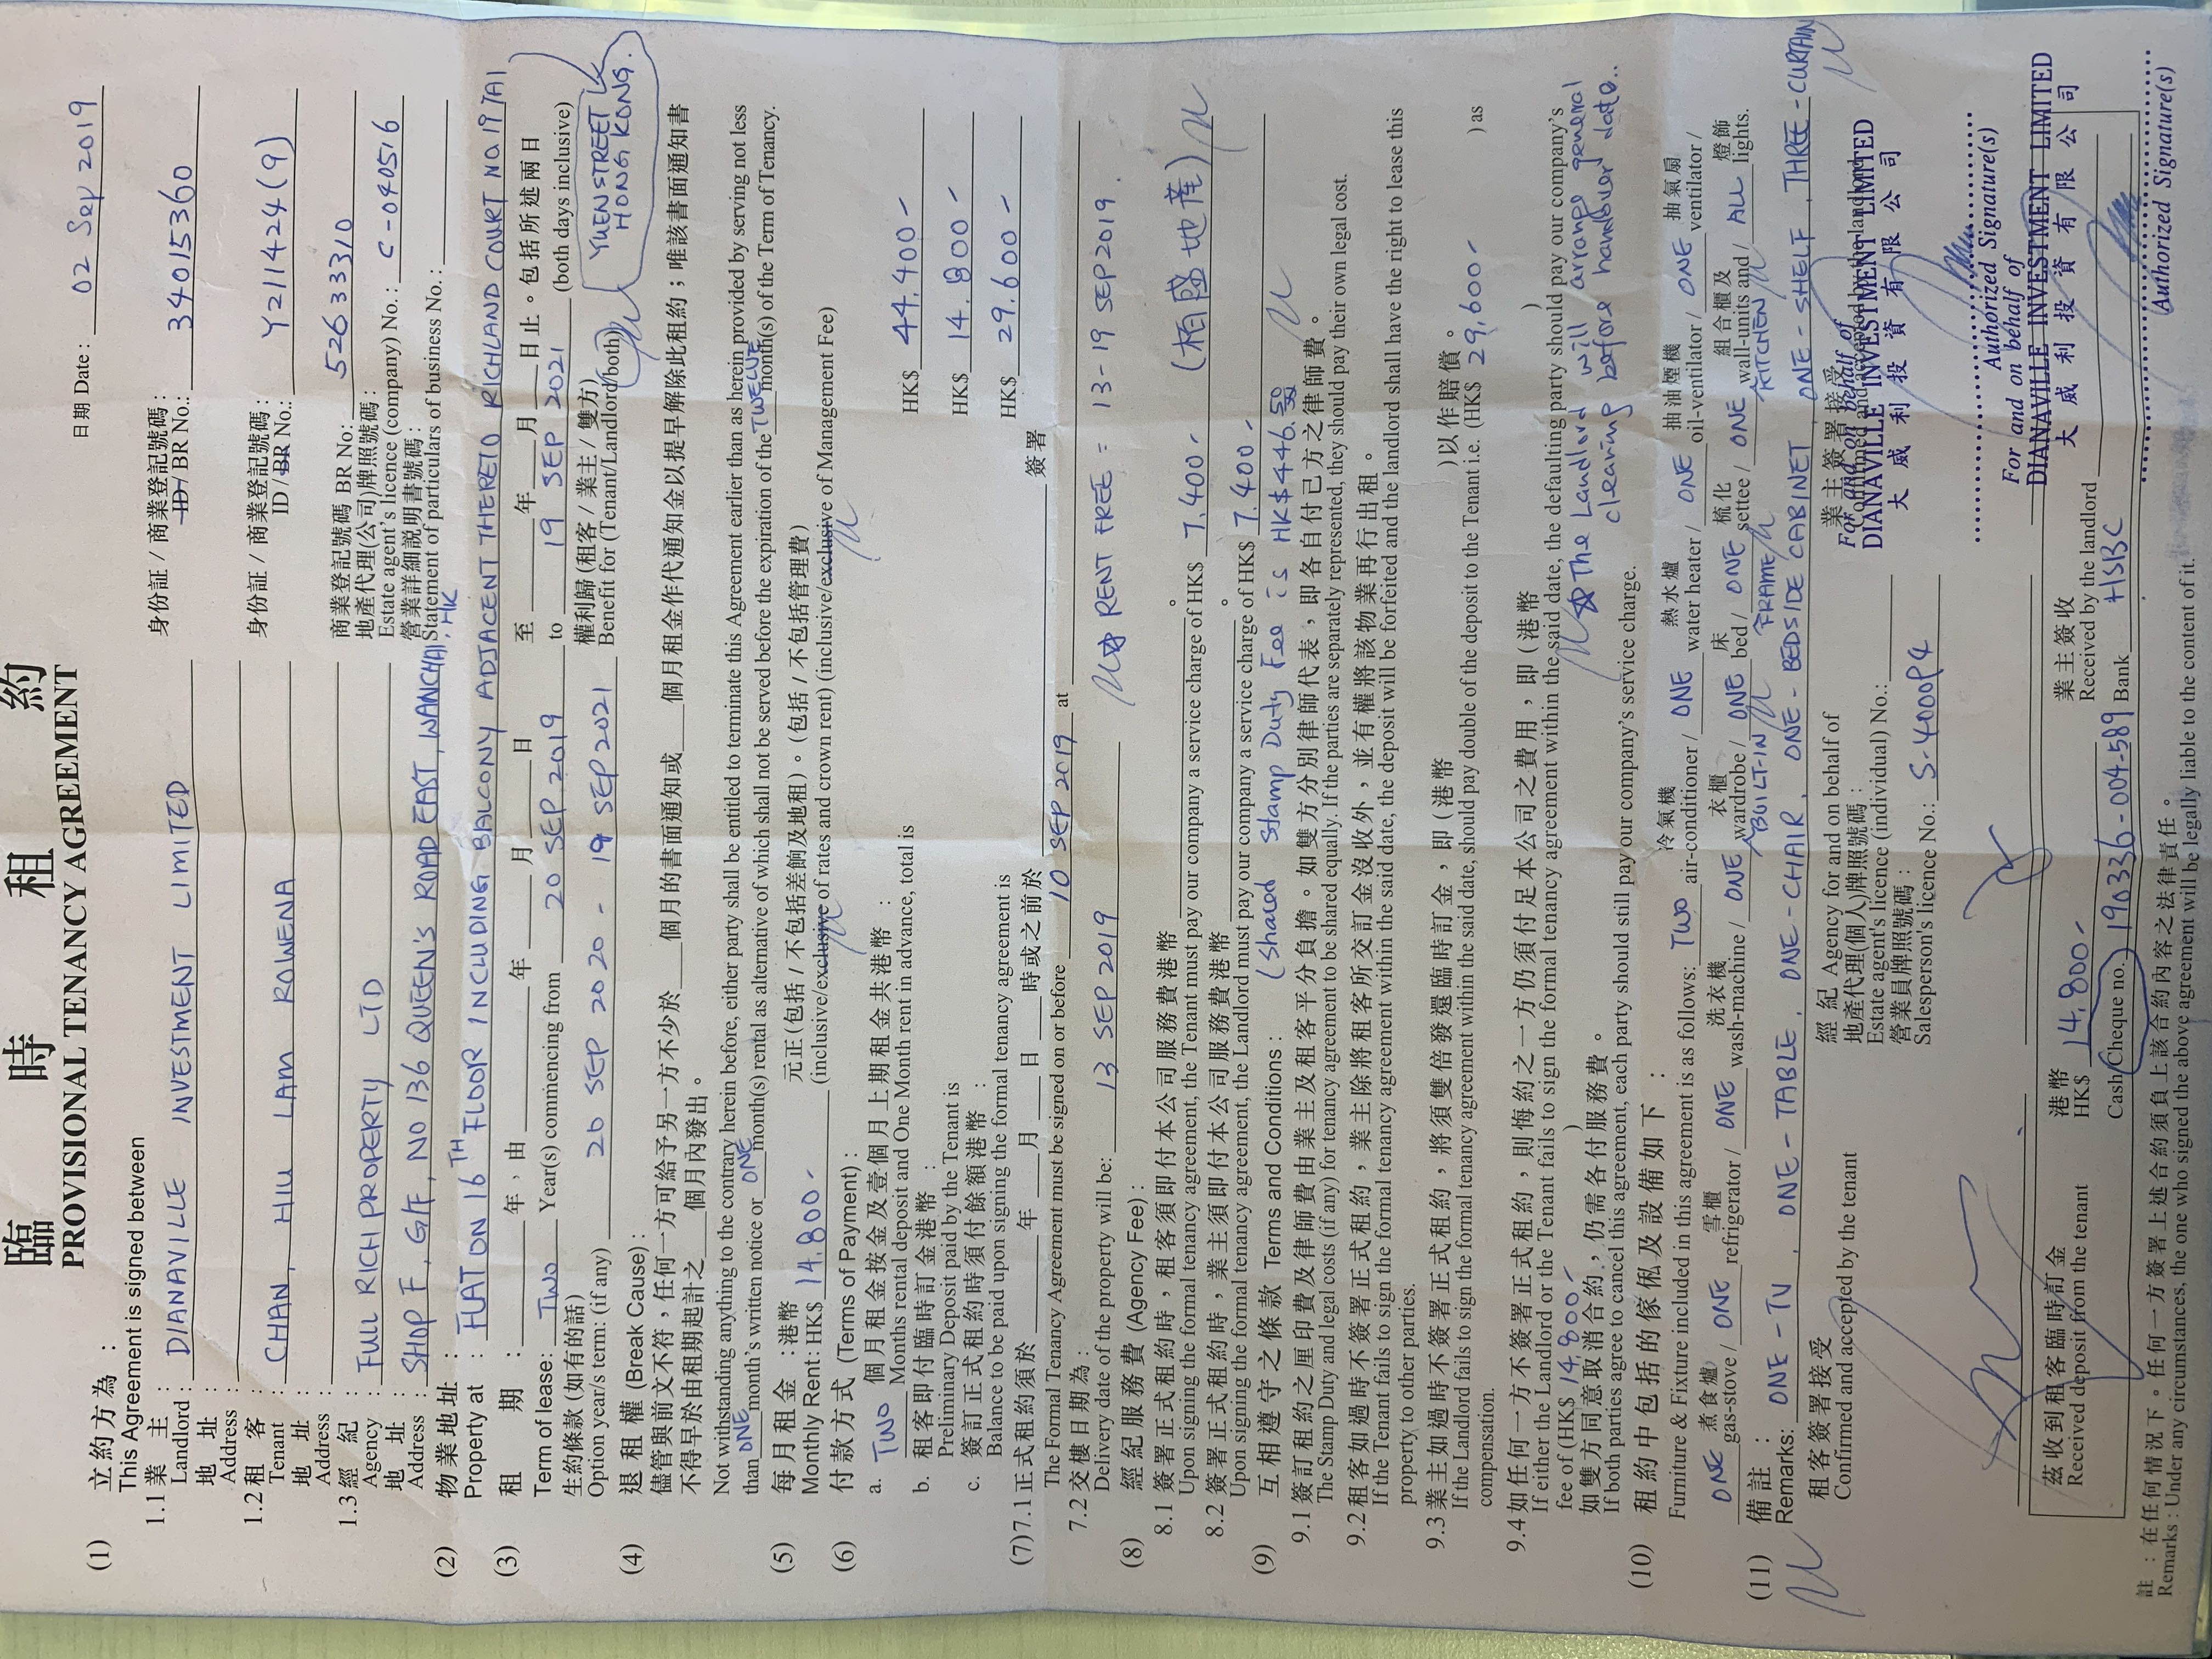 臨時租約
PROVISIONAL TENANCY AGREEMENT
日期 Date : 02 Sep 2019
(1) 立約方為 :
This Agreement is signed between
1.1 業主 身份証 / 商業登記號碼 :
Landlord : DIANAVILLE INVESTMENT LIMITED ID / BR No.: 34015360
地址
Address :
1.2 租客 身份証 / 商業登記號碼 :
Tenant : CHAN, HIU LAM ROWENA ID / BR No.: Y211424(9)
地址
Address :
1.3 經紀 商業登記號碼 BR No.: 52633310
Agency : FULL RICH PROPERTY LTD 地產代理(公司)牌照號碼 :
Estate agent's licence (company) No.: C-040516
地址 營業詳細説明書號碼 :
Address : SHOP F, G/F, NO 136 QUEEN'S ROAD EAST, WANCHAI, HK Statement of particulars of business No.:
(2) 物業地址 :
Property at : FLAT D ON 16TH FLOOR INCLUDING BALCONY ADJACENT THERETO RICHLAND COURT NO.17 TAI
YUEN STREET
HONG KONG.
(3) 租期 : 年,由 年 月 日 至 年 月 日止。包括所述兩日
Term of lease: TWO Year(s) commencing from 20 SEP 2019 to 19 SEP 2021 (both days inclusive)
生約條款 (如有的話) 權利歸 (租客 / 業主 / 雙方)
Option year/s term: (if any) 20 SEP 2020 - 19 SEP 2021 Benefit for (Tenant/Landlord/both)
(4) 退租權 (Break Cause) :
儘管與前文不符,任何一方可給予另一方不少於 個月的書面通知或 個月租金作代通知金以提早解除此租約;唯該書面通知書
不得早於由租期起計之 個月內發出。
Not withstanding anything to the contrary herein before, either party shall be entitled to terminate this Agreement earlier than as herein provided by serving not less
than ONE month's written notice or ONE month(s) rental as alternative of which shall not be served before the expiration of the TWELVE month(s) of the Term of Tenancy.
(5) 每月租金 : 港幣 元正 (包括 / 不包括差餉及地租)。(包括 / 不包括管理費)
Monthly Rent: HK$ 14,800- (inclusive/exclusive of rates and crown rent) (inclusive/exclusive of Management Fee)
(6) 付款方式 (Terms of Payment) :
a. 個月租金按金及壹個月上期租金共港幣 :
TWO Months rental deposit and One Month rent in advance, total is HK$ 44,400-
b. 租客即付臨時訂金港幣 :
Preliminary Deposit paid by the Tenant is HK$ 14,800-
c. 簽訂正式租約時須付餘額港幣 :
Balance to be paid upon signing the formal tenancy agreement is HK$ 29,600-
(7) 7.1 正式租約須於 年 月 日 時或之前於 簽署
The Formal Tenancy Agreement must be signed on or before 10 SEP 2019 at
7.2 交樓日期為 :
Delivery date of the property will be: 13 SEP 2019 RENT FREE = 13-19 SEP 2019
(8) 經紀服務費 (Agency Fee) :
8.1 簽署正式租約時,租客須即付本公司服務費港幣 。
Upon signing the formal tenancy agreement, the Tenant must pay our company a service charge of HK$ 7,400- (栢盛地產)
8.2 簽署正式租約時,業主須即付本公司服務費港幣 。
Upon signing the formal tenancy agreement, the Landlord must pay our company a service charge of HK$ 7,400-
(9) 互相遵守之條款 Terms and Conditions : (shared Stamp Duty Fee is HK$446.50
9.1 簽訂租約之厘印費及律師費由業主及租客平分負擔。如雙方分別律師代表,即各自付己方之律師費。
The Stamp Duty and legal costs (if any) for tenancy agreement to be shared equally. If the parties are separately represented, they should pay their own legal cost.
9.2 租客如過時不簽署正式租約,業主除將租客所交訂金沒收外,並有權將該物業再行出租。
If the Tenant fails to sign the formal tenancy agreement within the said date, the deposit will be forfeited and the landlord shall have the right to lease this
property to other parties.
9.3 業主如過時不簽署正式租約,將須雙倍發還臨時訂金,即 (港幣 ) 以作賠償。
If the Landlord fails to sign the formal tenancy agreement within the said date, should pay double of the deposit to the Tenant i.e. (HK$ 29,600- ) as
compensation.
9.4 如任何一方不簽署正式租約,則悔約之一方仍須付足本公司之費用,即 (港幣 )
If either the Landlord or the Tenant fails to sign the formal tenancy agreement within the said date, the defaulting party should pay our company's
fee of (HK$ 14,800- )
The Landlord will arrange general
cleaning before handover date..
如雙方同意取消合約,仍需各付服務費。
If both parties agree to cancel this agreement, each party should still pay our company's service charge.
(10) 租約中包括的傢俬及設備如下 : 冷氣機 熱水爐 抽油煙機 抽氣扇
Furniture & Fixture included in this agreement is as follows: TWO air-conditioner / ONE water heater / ONE oil-ventilator / ONE ventilator /
煮食爐 雪櫃 洗衣機 衣櫃 床 梳化 組合櫃及 燈飾
ONE gas-stove / ONE refrigerator / ONE wash-machine / ONE wardrobe / ONE bed / ONE settee / ONE wall-units and / ALL lights.
BUILT-IN FRAME KITCHEN
(11) 備註 :
Remarks: ONE-TV, ONE-TABLE, ONE-CHAIR, ONE-BEDSIDE CABINET, ONE-SHELF, THREE-CURTAIN
租客簽署接受 經紀 Agency for and on behalf of 業主簽署接受
Confirmed and accepted by the tenant 地產代理(個人)牌照號碼 : Confirmed and accepted by the landlord
Estate agent's licence (individual) No.:
營業員牌照號碼 :
Salesperson's licence No.: S-400094
For and on behalf of
DIANAVILLE INVESTMENT LIMITED
大威利投資有限公司
Authorized Signature(s)
For and on behalf of
DIANAVILLE INVESTMENT LIMITED
大威利投資有限公司
Authorized Signature(s)
茲收到租客臨時訂金 港幣 業主簽收
Received deposit from the tenant HK$ 14,800- Received by the landlord
Cash/Cheque no.) 190336-004-589 Bank HSBC
註 : 在任何情況下。任何一方簽署上述合約須負上該合約內容之法律責任。
Remarks : Under any circumstances, the one who signed the above agreement will be legally liable to the content of it.